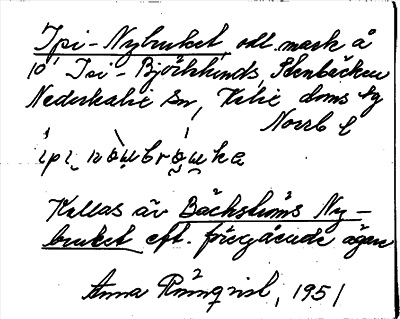 Ipi-Nybruket odl. mark å
10 Isi-Björklunds, Stenbäcken
Nederkalix sn, Kalix doms sg
Norrb l
Kallas av Bäckströms Ny-
bruket eft. föregående ägare
Anna Rönnqvist, 1951